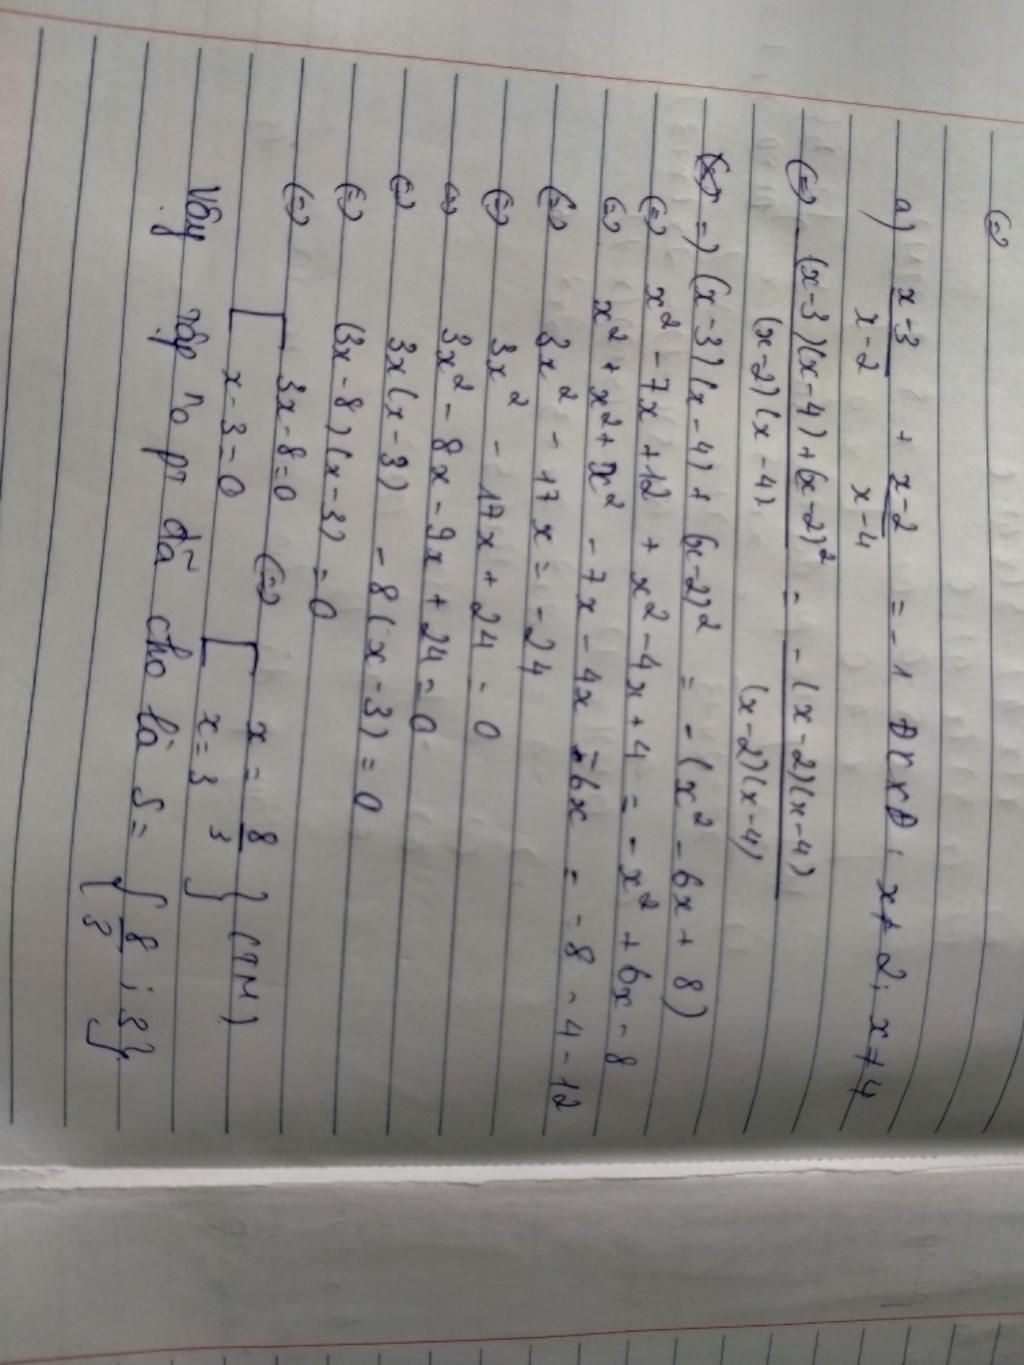 (=)
a) x-3/x-2 + x-2/x-4 = -1 ĐKXĐ: x≠2; x≠4
(=) (x-3)(x-4)+(x-2)²/(x-2)(x-4) = -(x-2)(x-4)/(x-2)(x-4)
=) (x-3)(x-4)+(x-2)² = -(x²-6x+8)
(=) x²-7x+12+x²-4x+4 = -x²+6x-8
(=) x²+x²+x²-7x-4x-6x = -8-4-12
(=) 3x²-17x=-24
(=) 3x²-17x+24=0
(=) 3x²-8x-9x+24=0
(=) 3x(x-3)-8(x-3)=0
(=) (3x-8)(x-3)=0
(=) [3x-8=0 (=) [x=8/3 } (TM)
x-3=0 x=3
Vậy tập no pt đã cho là S={8/3;3}